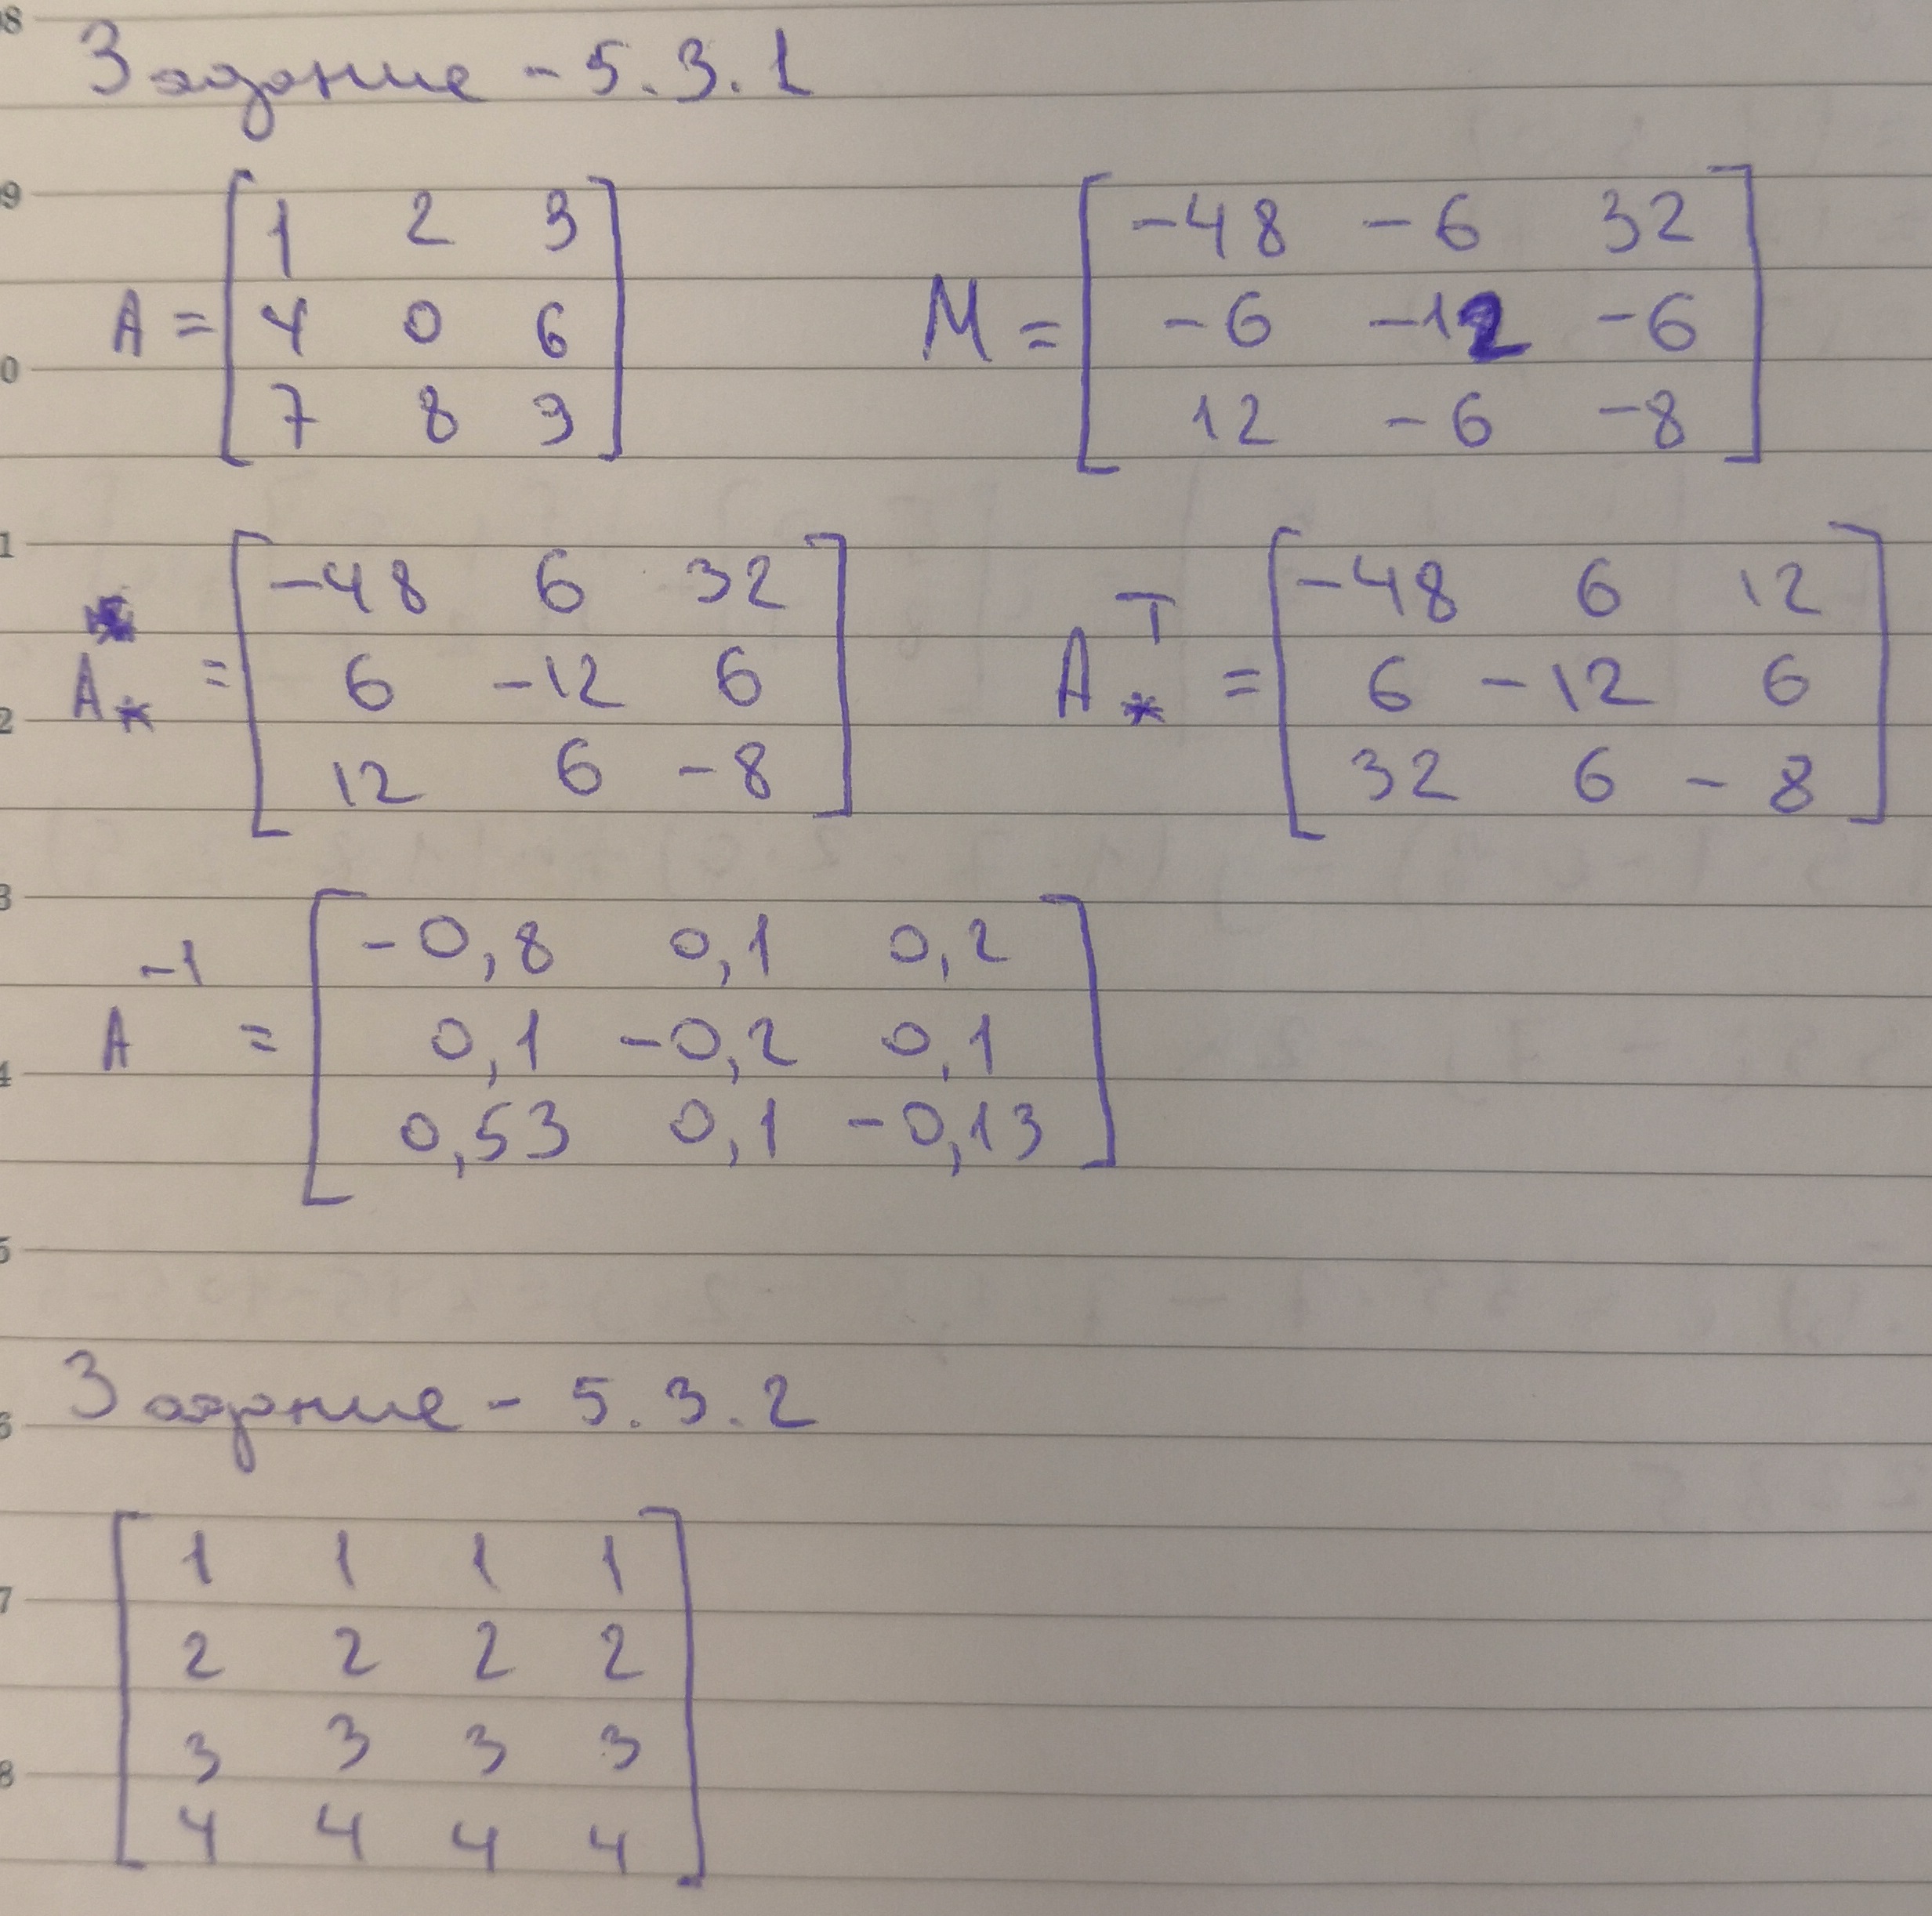 Задание - 5.3.1
A = [1 2 3
4 0 6
7 8 9]
M = [-48 -6 32
-6 -12 -6
12 -6 -8]
A* = [-48 6 32
6 -12 6
12 6 -8]
A*^T = [-48 6 12
6 -12 6
32 6 -8]
A^-1 = [-0,8 0,1 0,2
0,1 -0,2 0,1
0,53 0,1 -0,13]
Задание - 5.3.2
[1 1 1 1
2 2 2 2
3 3 3 3
4 4 4 4]